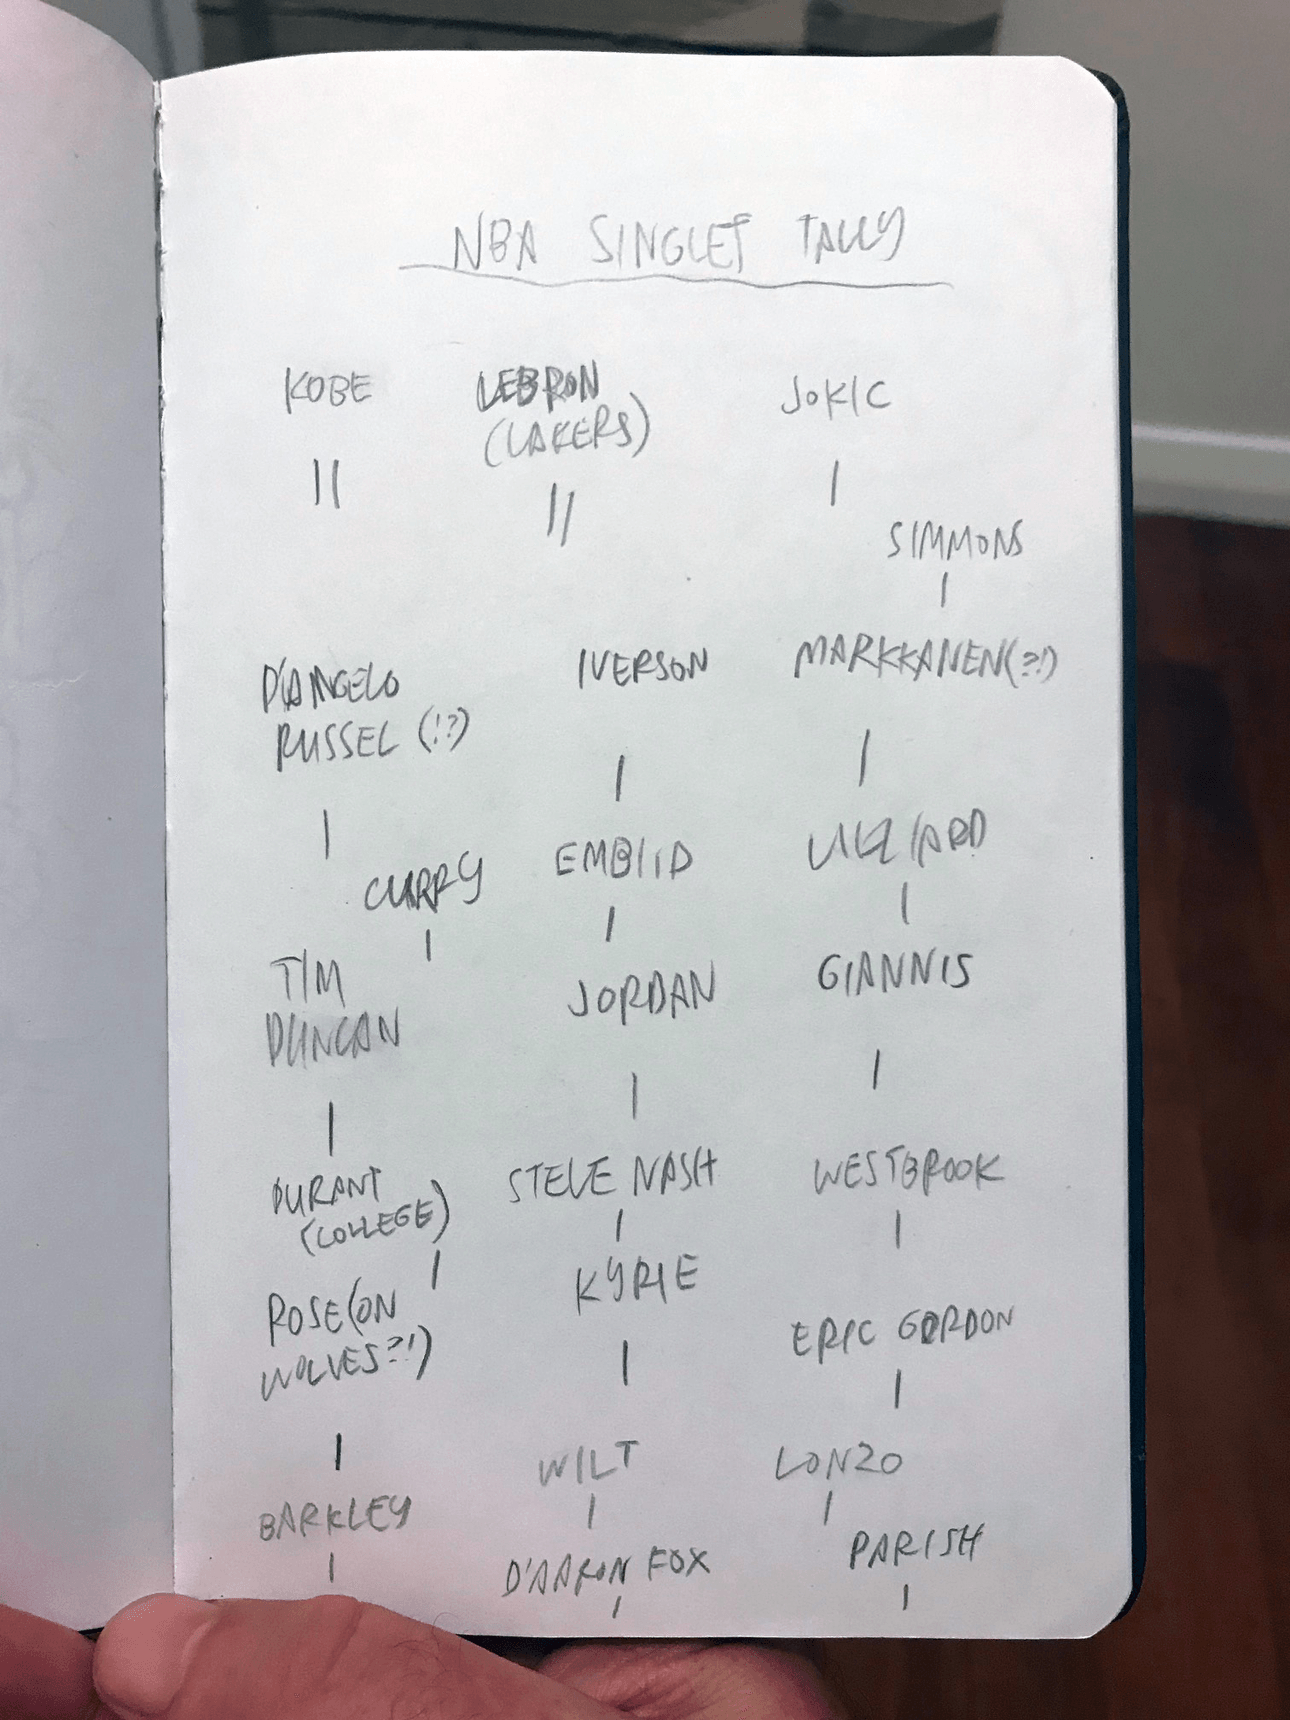 NBA SINGLET TALLY
KOBE
||
LEBRON
(LAKERS)
||
JOKIC
|
SIMMONS
|
D'ANGELO
RUSSEL (!?)
|
IVERSON
|
MARKKANEN(?!)
|
CURRY
|
EMBIID
|
LILLARD
|
TIM
DUNCAN
|
JORDAN
|
GIANNIS
|
DURANT
(COLLEGE)
|
STEVE NASH
|
WESTBROOK
|
ROSE(ON
WOLVES?!)
|
KYRIE
|
ERIC GORDON
|
BARKLEY
|
WILT
|
LONZO
|
D'AARON FOX
|
PARISH
|